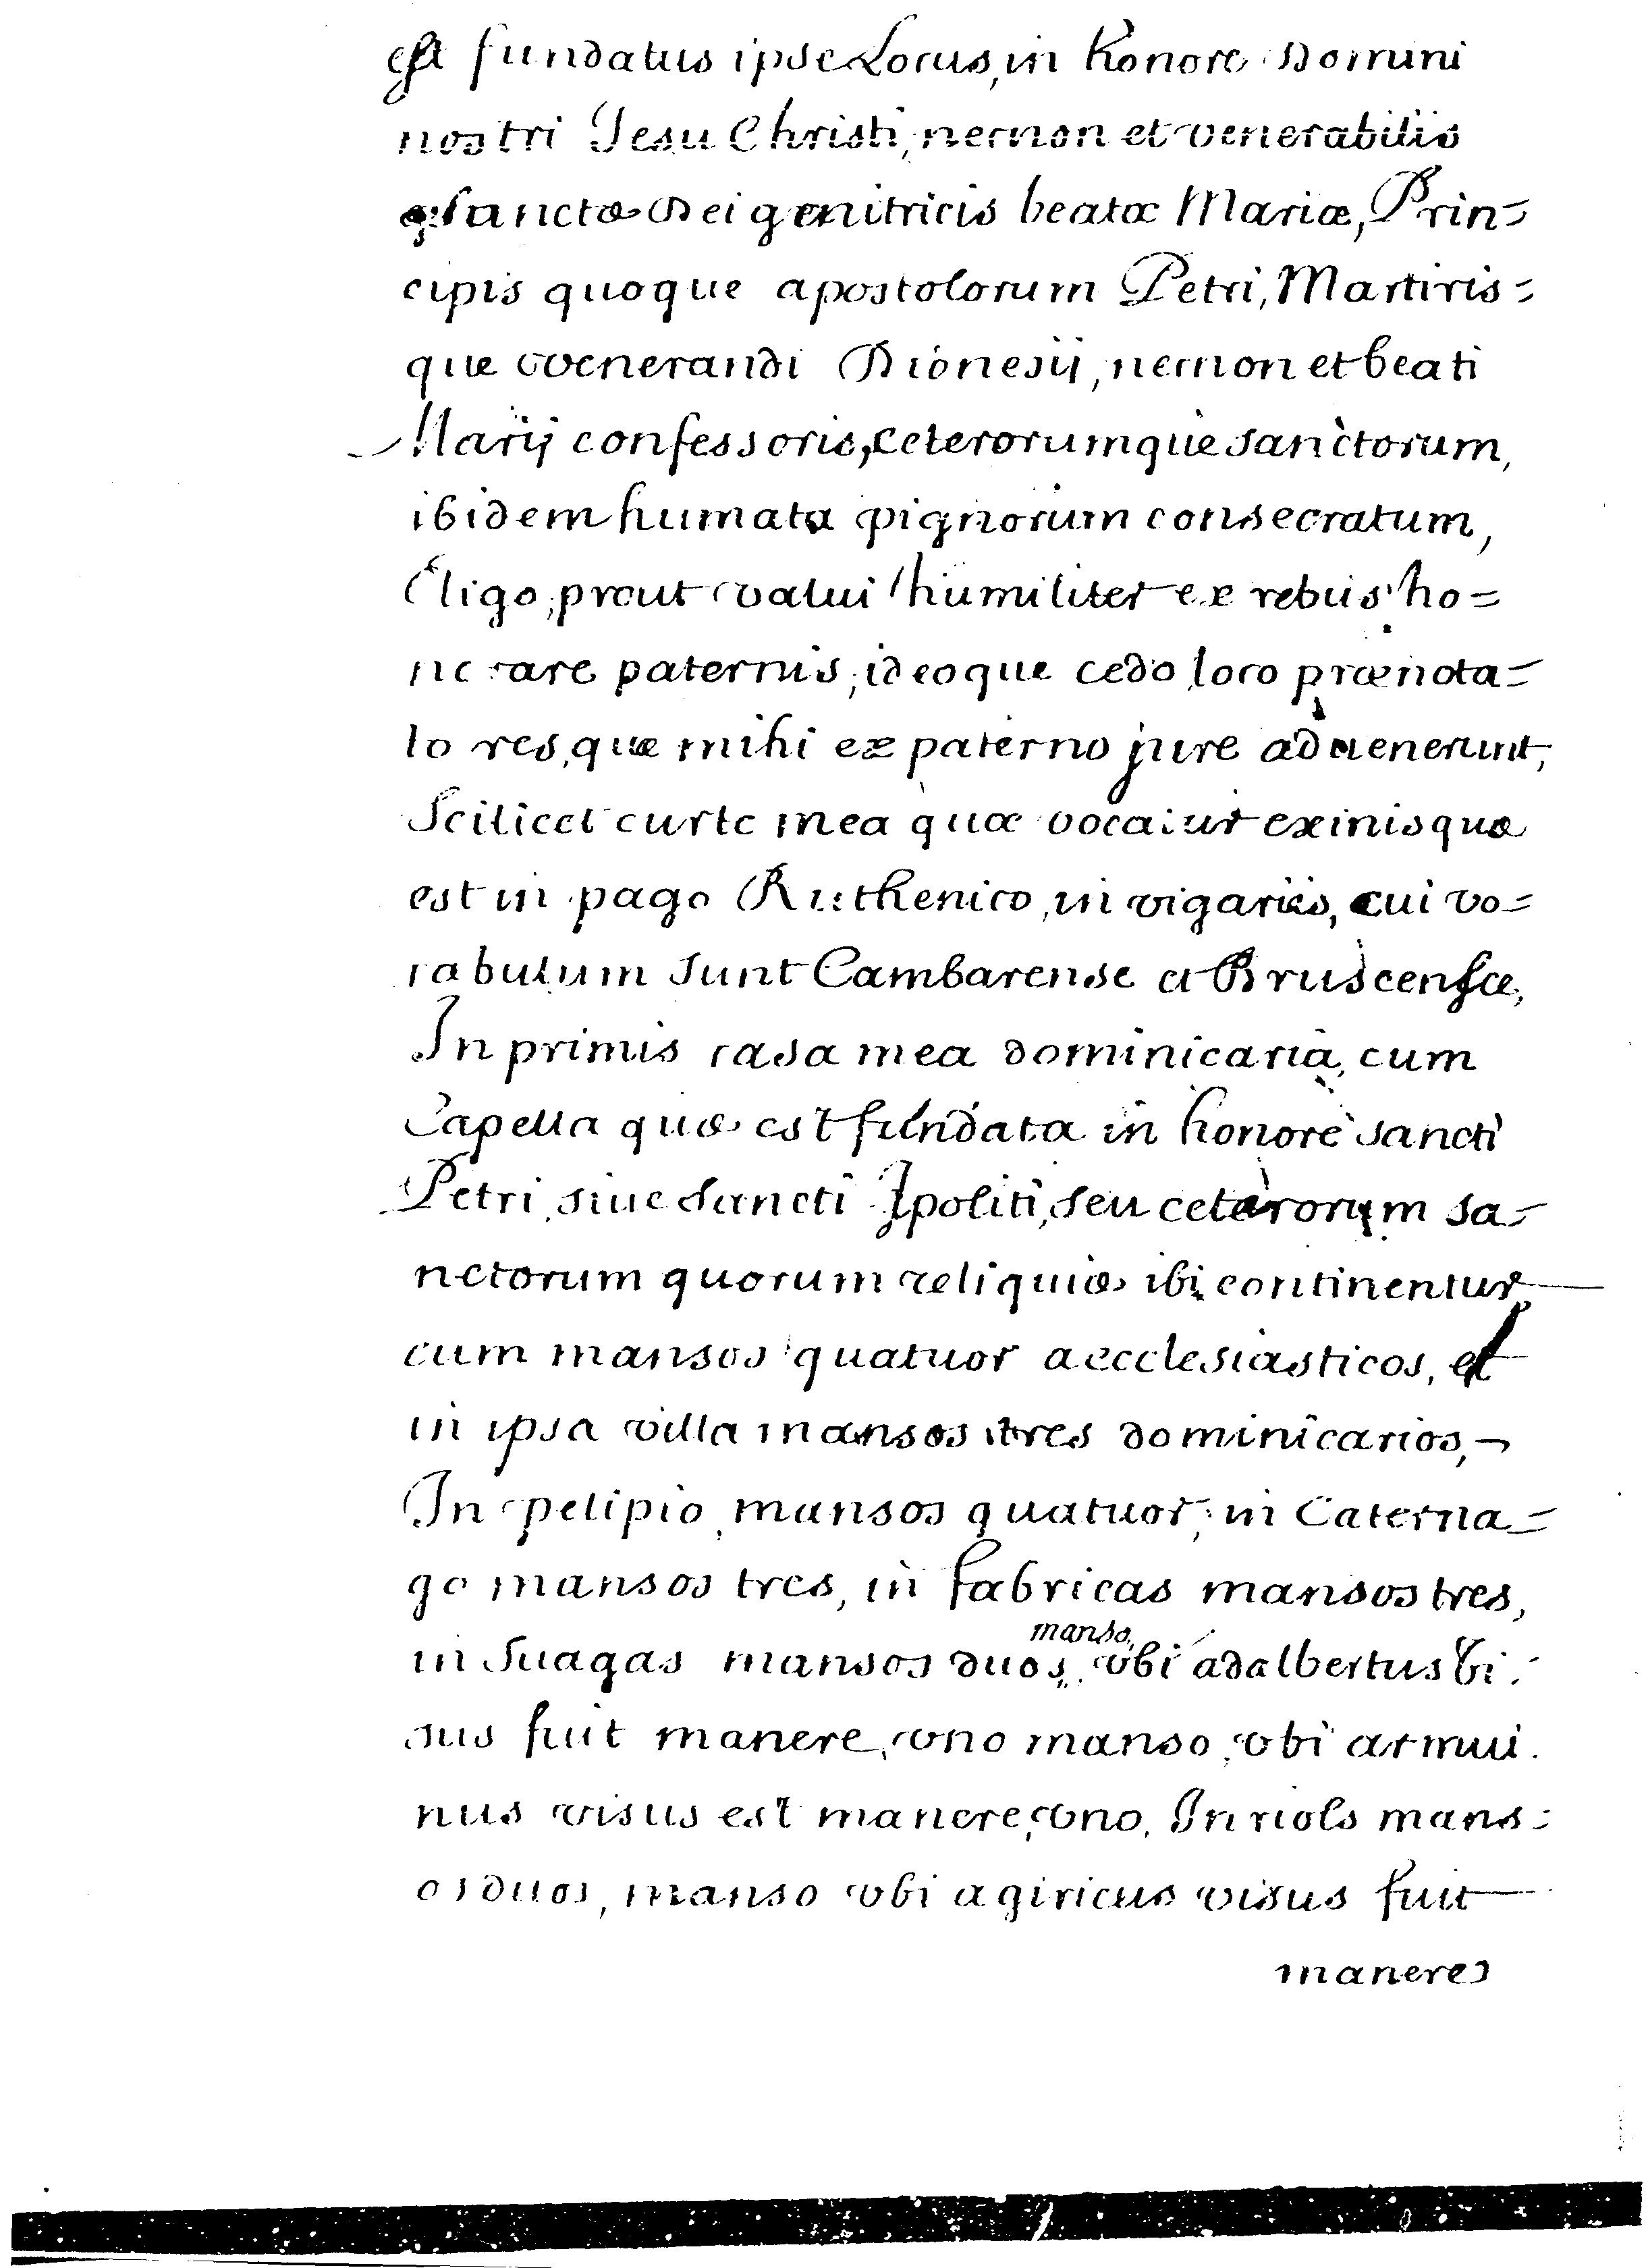 est fundatus ipse Locus, in honore Domini
nostri Jesu Christi, necnon et venerabilis
sanctæ Dei genitricis beatæ Mariæ, Prin=
cipis quoque apostolorum Petri, Martiris=
que venerandi Dionesij, necnon et beati
Marij confessoris, ceterorumque sanctorum,
ibidem humata pignorum consecratum,
Eligo, prout valui humiliter ex rebus ho=
norare paternis, ideoque cedo loco prænota=
to res, quæ mihi ex paterno jure aduenerunt,
Scilicet curte mea quæ vocatur exinis quæ
est in pago Ruthenico, in vigariis, cui vo=
cabulum sunt Cambarense et Bruscense,
In primis casa mea dominicaria, cum
Capella quæ est fundata in honore sancti
Petri, siue sancti Ipoliti, seu ceterorum sa=
nctorum quorum reliquiæ ibi continentur
cum mansos quatuor aecclesiasticos, et
in ipsa villa mansos tres dominicarios,
In pelipio mansos quatuor, in Caterna=
go mansos tres, in fabricas mansos tres,
in Suagas mansos duos, manso, vbi adalbertus bi=
sus fuit manere, vno manso, vbi armui=
nus visus est manere, vno. In riols mans=
os duos, manso vbi agiricus visus fuit
manere